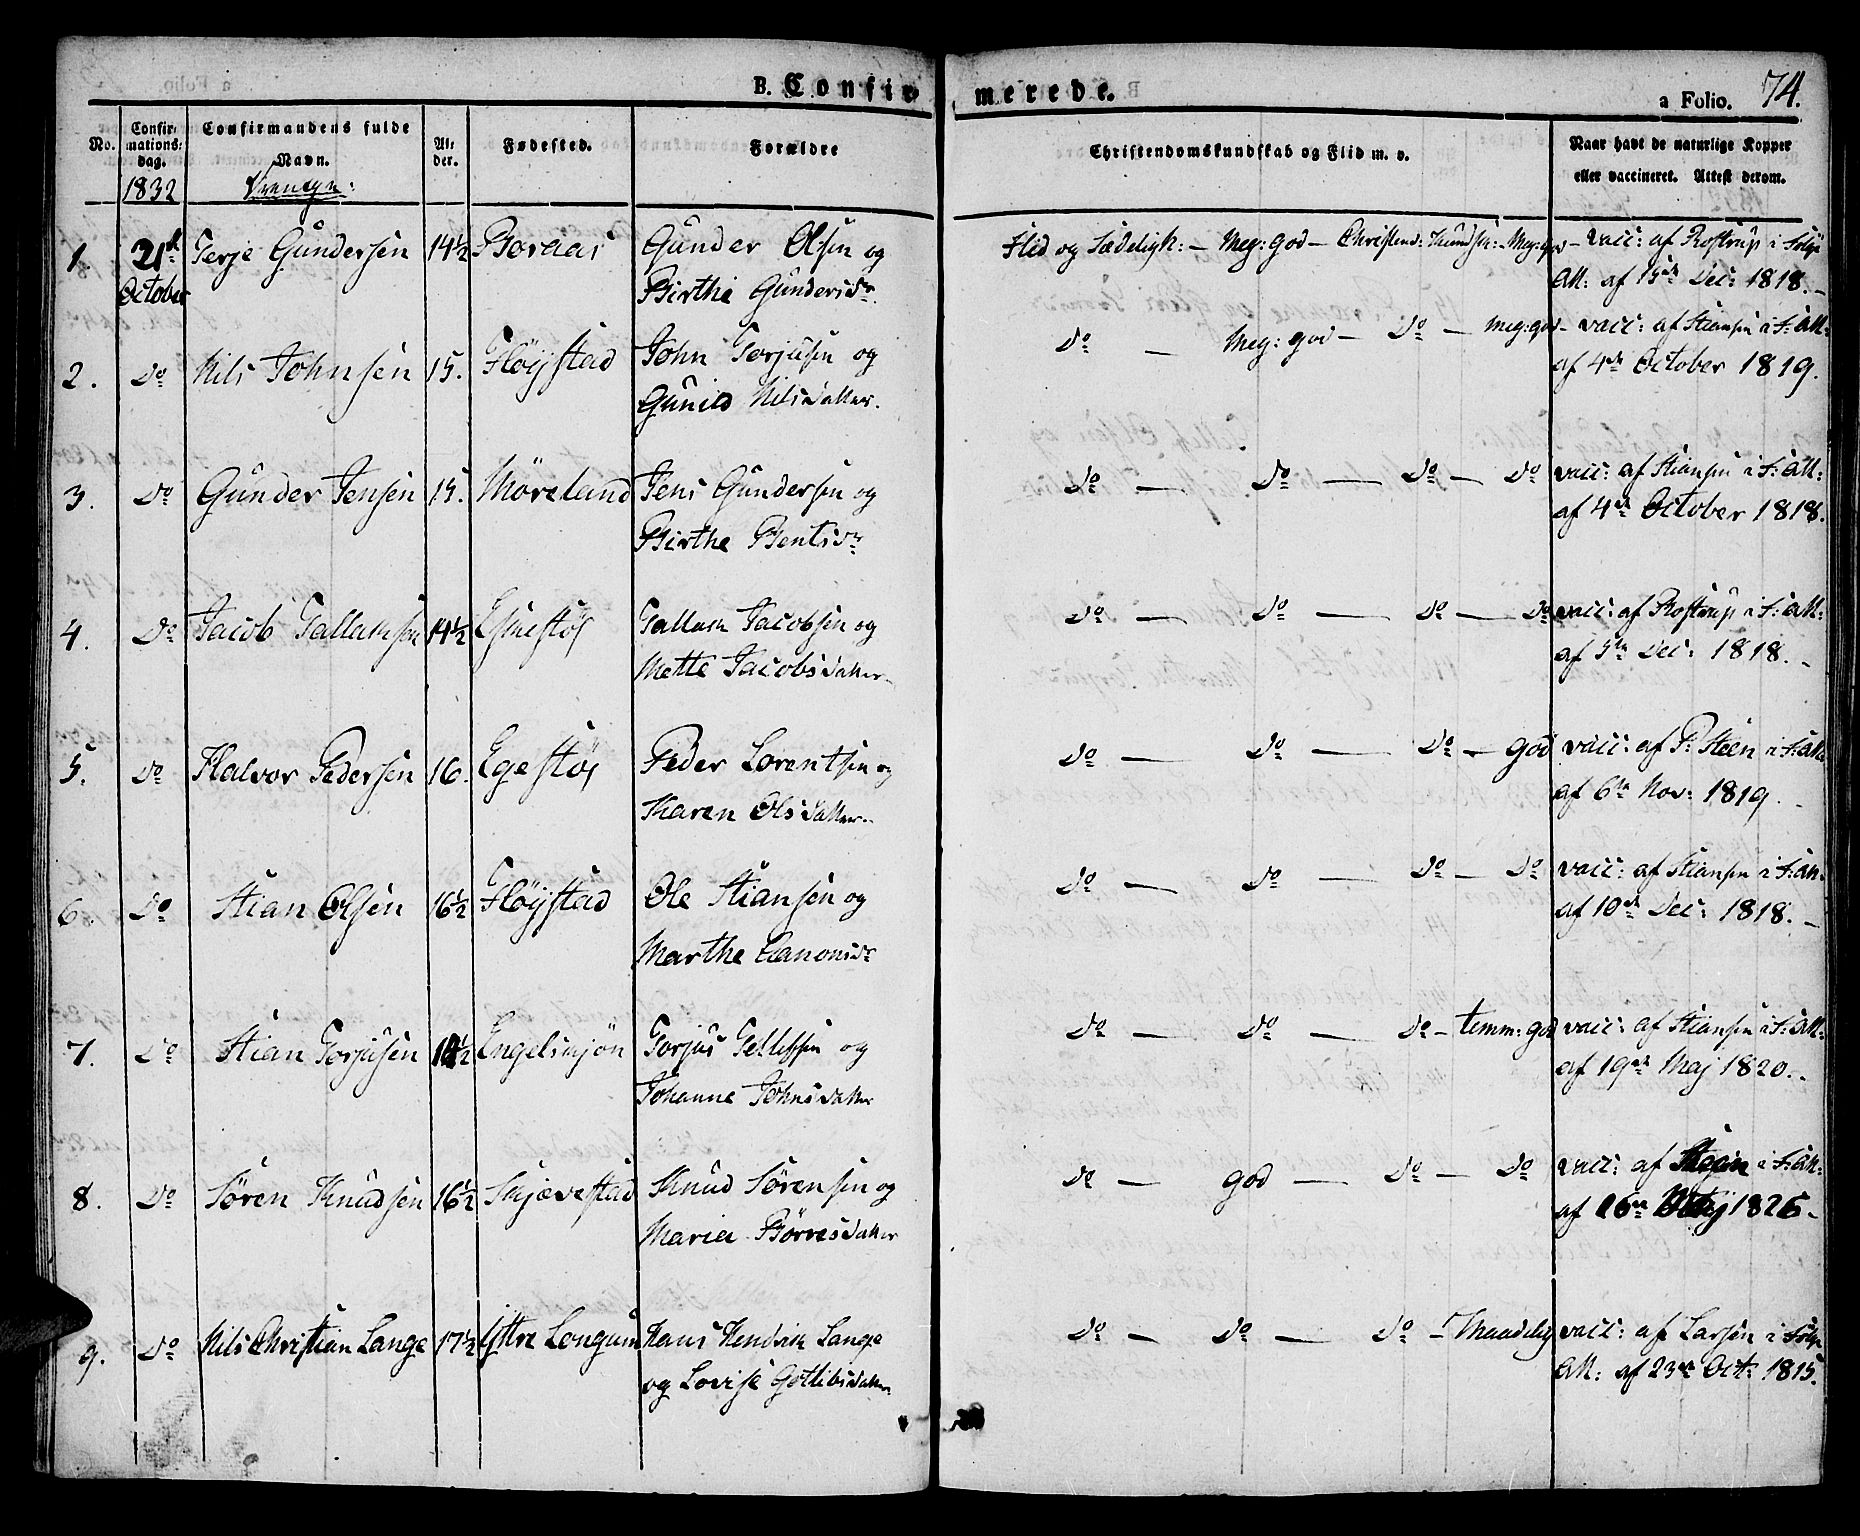 B. Confir merede.
a Folio. 74.
No. Confirmations dag. Confirmandens fulde Navn. Alder. Fødested. Forældre Christendomskundskab og Flid m. v. Naar havt de naturlige Kopper eller vaccineret. Attest derom.
1832
1. 21de October Terje Gundersen 14½ Boraas Gunder Olsen og Flid og Sædeligh: — Meg: god — Christend: Kundsk: — Meg: god — vacc: af Rostrup i Følge
Birthe Gundersdr. Att: af 15de Dec: 1818. —
2. Do Nils Johnsen 15. Fløystad John Torjusen og Do — Meg: god — Do — Meg: god — vacc: af Stiansen i F: Att:
Gunild Nilsdatter. af 4de October 1819.
3. Do Gunder Jensen 15. Møreland Jens Gundersen og Do — Do — Do — Do vacc: af Stiansen i F: Att:
Birthe Bentsdr af 4de October 1818.
4. Do Jacob Tallaksen 14½ Tallak Jacobsen og Do — Do — Do — Do vacc: af Rostrup i F: Att:
Mette Jacobsdatter af 5te Dec: 1818. —
5. Do Halvor Pedersen 16. Peder Lorentsen og Do — Do — Do — god vacc: af P: Steen i F: Att:
Karen Olsdatter af 6te Nov: 1819. —
6. Do Stian Olsen 16½ Fløystad Ole Stiansen og Do — Do — Do — Do vacc: af Stiansen i F: Att:
Marthe Aanonsdr af 10de Dec: 1818. —
7. Do Stian Torjusen Engelsmjøn Torjus Tellefsen og Do — Do — Do — temm: god vacc: af Stiansen i F: Att:
Johanne Johnsdatter af 19de Maj 1820. —
8. Do Søren Knudsen 16½ Skjævestad Knud Sørensen og Do — god — Do — Do vacc: af i F: Att:
Maria Børresdatter af 1826. —
9. Do Nils Christian Lange 17½ Østre Longum Hans Hendrik Lange Do — Do — Do — Maadelig vacc: af Larsen i Følge
og Lovise Gotlibsdatter Att: af 23de Oct: 1815.